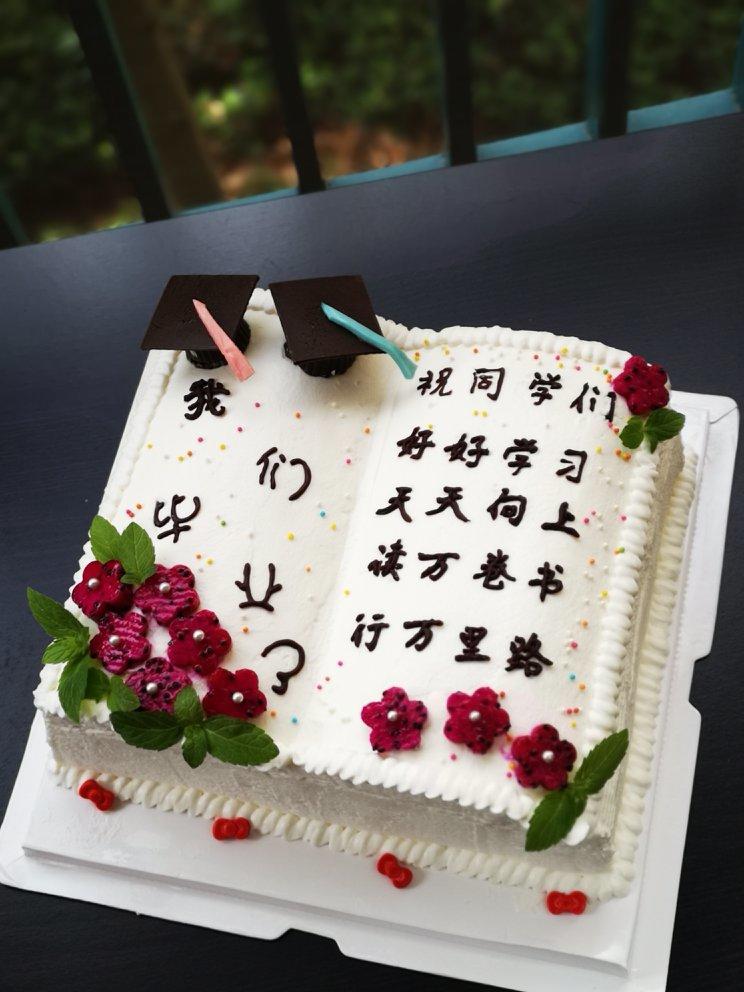 我们毕业了
祝同学们
好好学习
天天向上
读万卷书
行万里路